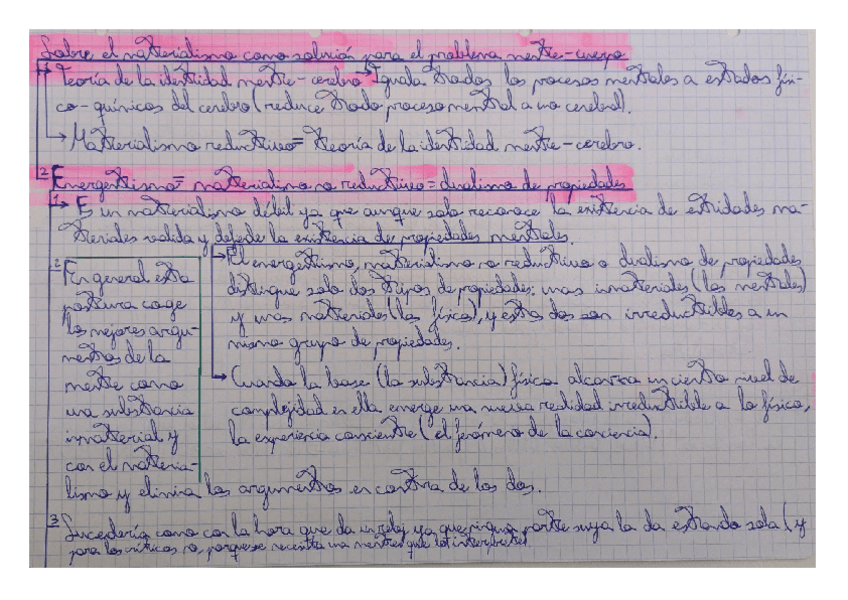 Sobre el materialismo como solución para el problema mente-cuerpo
1 → Teoría de la identidad mente-cerebro → Iguala todos los procesos mentales a estados físi-
co-químicos del cerebro (reduce todo proceso mental a uno cerebral).
→ Materialismo reductivo = teoría de la identidad mente-cerebro.
2 Emergentismo = materialismo no reductivo = dualismo de propiedades
1 → Es un materialismo débil ya que aunque solo reconoce la existencia de entidades ma-
teriales valida y defiende la existencia de propiedades mentales.
→ El emergentismo, materialismo no reductivo o dualismo de propiedades
distingue solo dos tipos de propiedades: unas inmateriales (las mentales)
y unas materiales (las físicas), y estas dos son irreductibles a un
mismo grupo de propiedades.
→ Cuando la base (la substancia) física alcanza un cierto nivel de
complejidad en ella emerge una nueva realidad irreductible a lo físico,
la experiencia consciente (el fenómeno de la conciencia).
2 En general esta
postura coge
los mejores argu-
mentos de la
mente como
una substancia
inmaterial y
con el materia-
lismo y elimina los argumentos en contra de los dos.
3 Sucedería como con la hora que da un reloj ya que ninguna parte suya la da estando sola (y
para los críticos no, porque se necesita una mente que lo interprete)